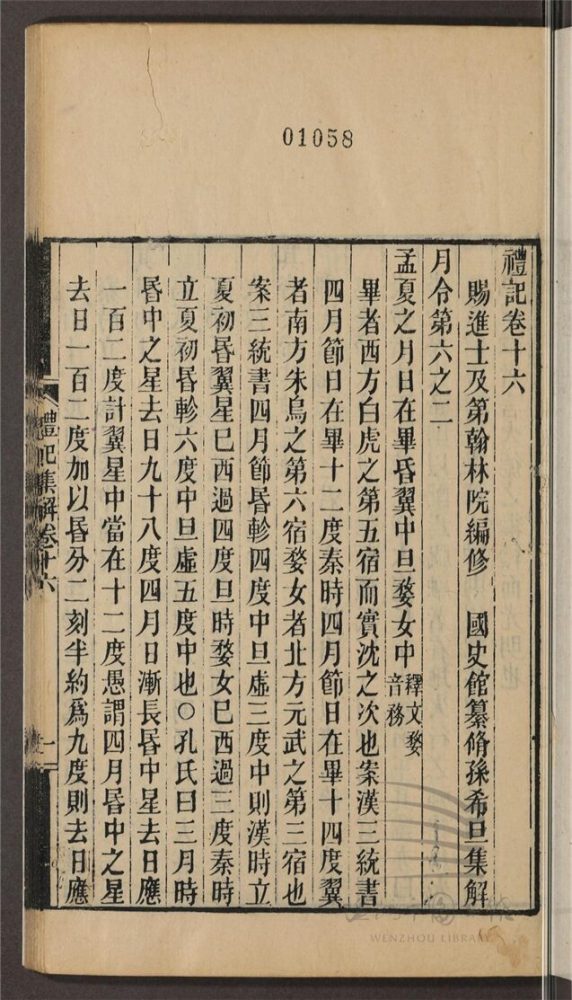 01058
禮記卷十六
賜進士及第翰林院編修 國史館纂脩孫希旦集解
月令第六之二
孟夏之月日在畢昏翼中旦婺女中釋文婺音務
畢者西方白虎之第五宿而實沈之次也案漢三統書
四月節日在畢十二度秦時四月節日在畢十四度翼
者南方朱鳥之第六宿婺女者北方元武之第三宿也
案三統書四月節昏軫四度中旦虛三度中則漢時立
夏初昏翼星巳西過四度旦時婺女巳西過三度秦時
立夏初昏軫六度中旦虛五度中也○孔氏曰三月時
昏中之星去日九十八度四月日漸長昏中星去日應
一百二度計翼星中當在十二度愚謂四月昏中之星
去日一百二度加以昏分二刻半約爲九度則去日應
禮記集解卷十六
一
WENZHOU LIBRARY